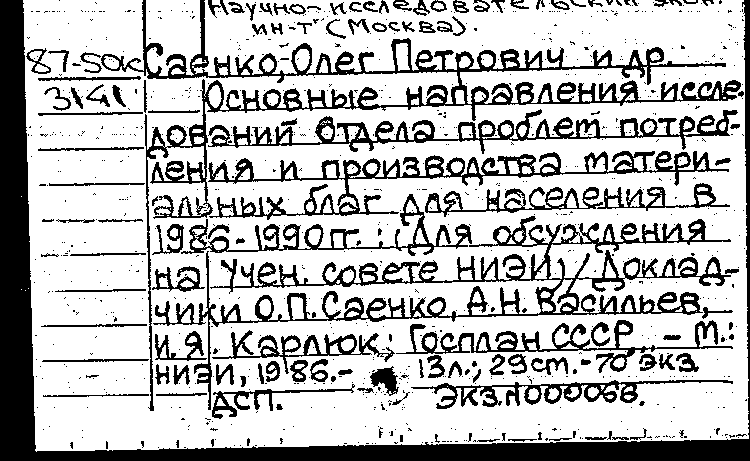 Научно-исследовательский экон.
ин-т (Москва).
87-50к Саенко, Олег Петрович и др.
3141 Основные направления иссле-
дований отдела проблем потреб-
ления и производства матери-
альных благ для населения в
1986-1990 гг. : (Для обсуждения
на Учен. совете НИЭИ) / Доклад-
чики О.П. Саенко, А.Н. Васильев,
И.Я. Карлюк; Госплан СССР. - М.:
НИЭИ, 1986.- 13л.; 29см.-70 экз.
ДСП. ЭКЗ.N000068.